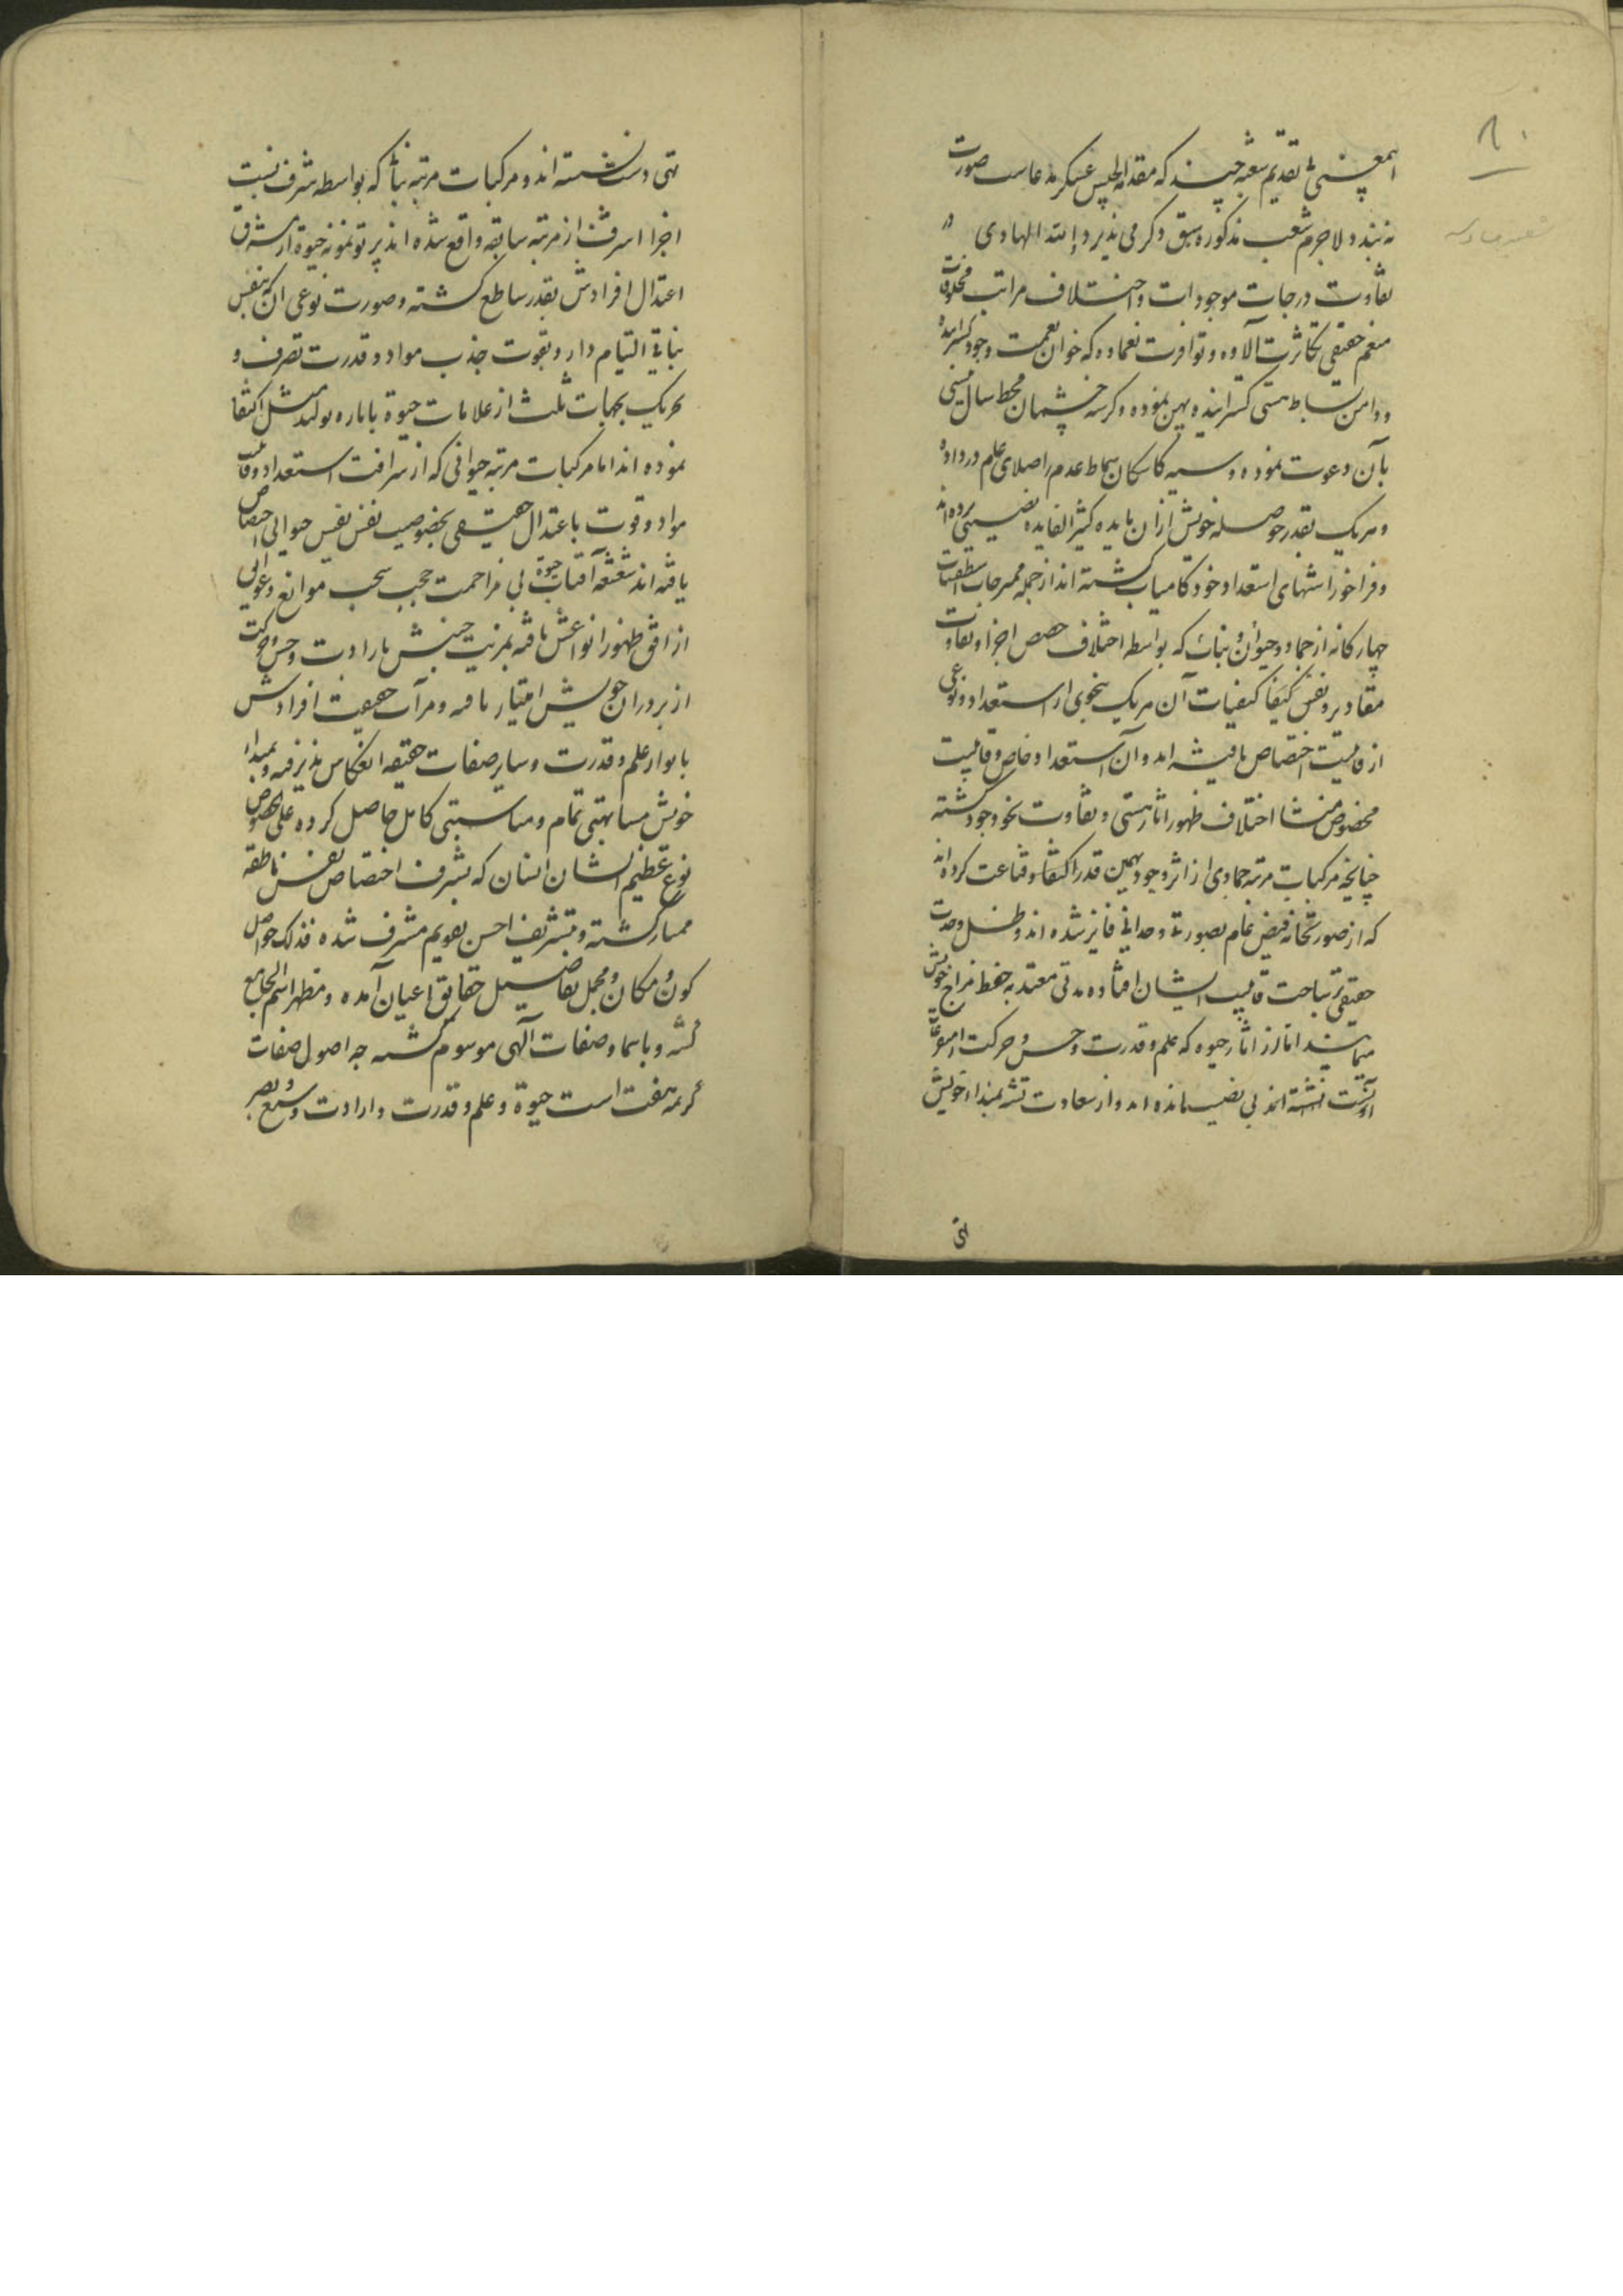 ۸۰
نه بندد لاجرم شعب مذکوره سبق ذکر می پذیرد و الله الهادی
تفاوت درجات موجودات و اختلاف مراتب مخلوقات
منعم حقیقی تکاثرت آلاوه و توافرت نعماوه که خوان نعمت وجود کسترانیده
و دامن بساط هستی کسترانیده و پهن نموده و کرسنه چشمان قحط سال نیستی
بآن دعوت نموده و سیه کاسکان سماط عدم را صلای عام در داده
و هر یک بقدر حوصله خویش از آن مایده کثیر الفایده نصیبی برده اند
و فراخور اشتهای استعداد خود کامیاب کشته اند از جمله ممتزجات اسطقسات
چهارکانه از جماد و حیوان و نبات که بواسطه اختلاف حصص اجزا و تفاوت
مقادیر و نقص کیفا کیفیات آن هر یک بنحوی از استعداد و نوعی
از قابلیت اختصاص یافیته اند و آن استعداد خاص و قابلیت
مخصوص منشا اختلاف ظهور آثار هستی و تفاوت نحو وجود کشته
چنانچه مرکبات مرتبه جمادی از اثر وجود بهمین قدر اکتفا و قناعت کرده اند
که از صورتخانه فیض عام بصورتی وحدانی فایز شده اند و ظل وحدت
حقیقی بر ساحت قابلیت ایشان افتاده مدتی معتد به حفظ مزاج خویش
مینمایند اما از آثار حیوه که علم و قدرت و حس و حرکت
نشئه اند بی نصیب مانده اند و از سعادت تشبه بمبداء خویش
تهی
تهی دست نشسته اند و مرکبات مرتبه نبات که بواسطه شرف نسبت
اجزا اشرف از مرتبه سابقه واقع شده اند پرتو نمونه حیوة از مشرق
اعتدال افرادش بقدر ساطع کشته و صورت نوعی آن که بنفس
نباتی التیام دارد و بقوت جذب مواد و قدرت تصرف و
تحریک بجهات ثلث از علامات حیوة با ماره تولید مثل اکتفا
نموده اند اما مرکبات مرتبه حیوانی که از شرافت استعداد و قابلیت
مواد و قوت باعتدال حقیقی بخصوصیت نفس نفیس حیوانی اختصاص
یافته اند شعشعه آفتاب حیوة بی مزاحمت حجب سحب موانع و عوایق
از افق ظهور انواعش یافته بمزیت جنبش بارادت و حس و حرکت
از برادران خویش امتیاز یافته و مرآت حقیقت افرادش
بانوار علم و قدرت و سایر صفات حقیقه انعکاس پذیرفته و بمبداء
خویش مشابهتی تمام و مناسبتی کامل حاصل کرده علی الخصوص
نوع عظیم الشان انسان که بشرف اختصاص نفس ناطقه
ممتاز کشته و بتشریف احسن تقویم مشرف شده فذلک حواصل
کون و مکان و مجمل تفاصیل حقایق اعیان آمده و مظهر اسم الجامع
کشته و باسما و صفات آلهی موسوم کشته چه اصول صفات
کریمه هفت است حیوة و علم و قدرت و ارادت و سمع و بصر